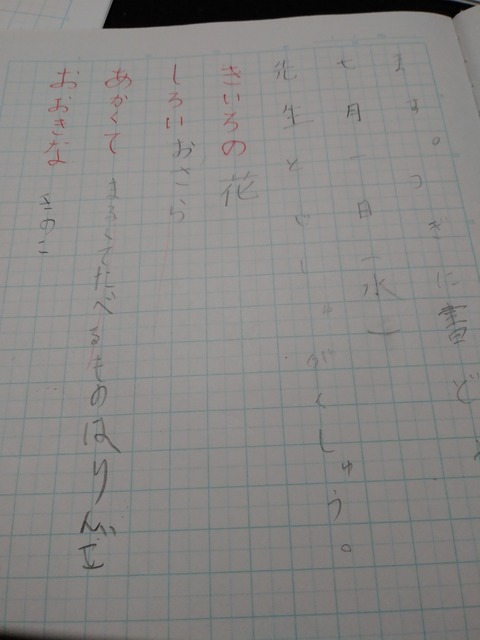 つぎに書
七月一日(水)
先生と がくしゅう。
きいろの花
しろいおさら
あかくて まるくてたべるものはりんご
おおきな きのこ